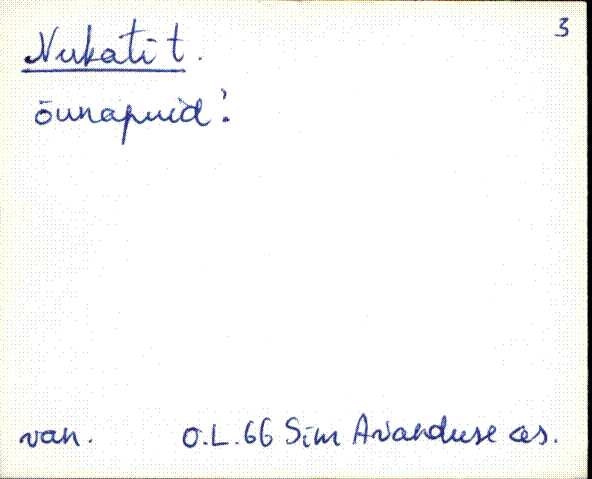 3
Nukatit.
õunapuid?
van. O.L.66 Sim Avanduse as.